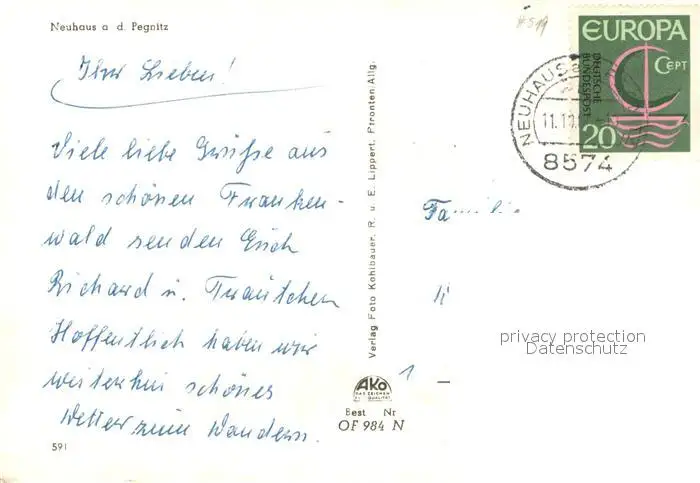 Neuhaus a d. Pegnitz
Ihr Lieben!
Viele liebe Grüße aus
den schönen Franken-
wald senden Euch
Richard u. Trautchen
Hoffentlich haben wir
weiterhin schönes
Wetter zum Wandern.
591
Verlag Foto Kohlbauer, R. u. E. Lippert, Pfronten/Allg.
AKO
DAS ZEICHEN
FÜR QUALITÄT
Best Nr
OF 984 N
EUROPA
CEPT
DEUTSCHE
BUNDESPOST
20
NEUHAUS
11.10.
8574
Familie
1
privacy protection
Datenschutz